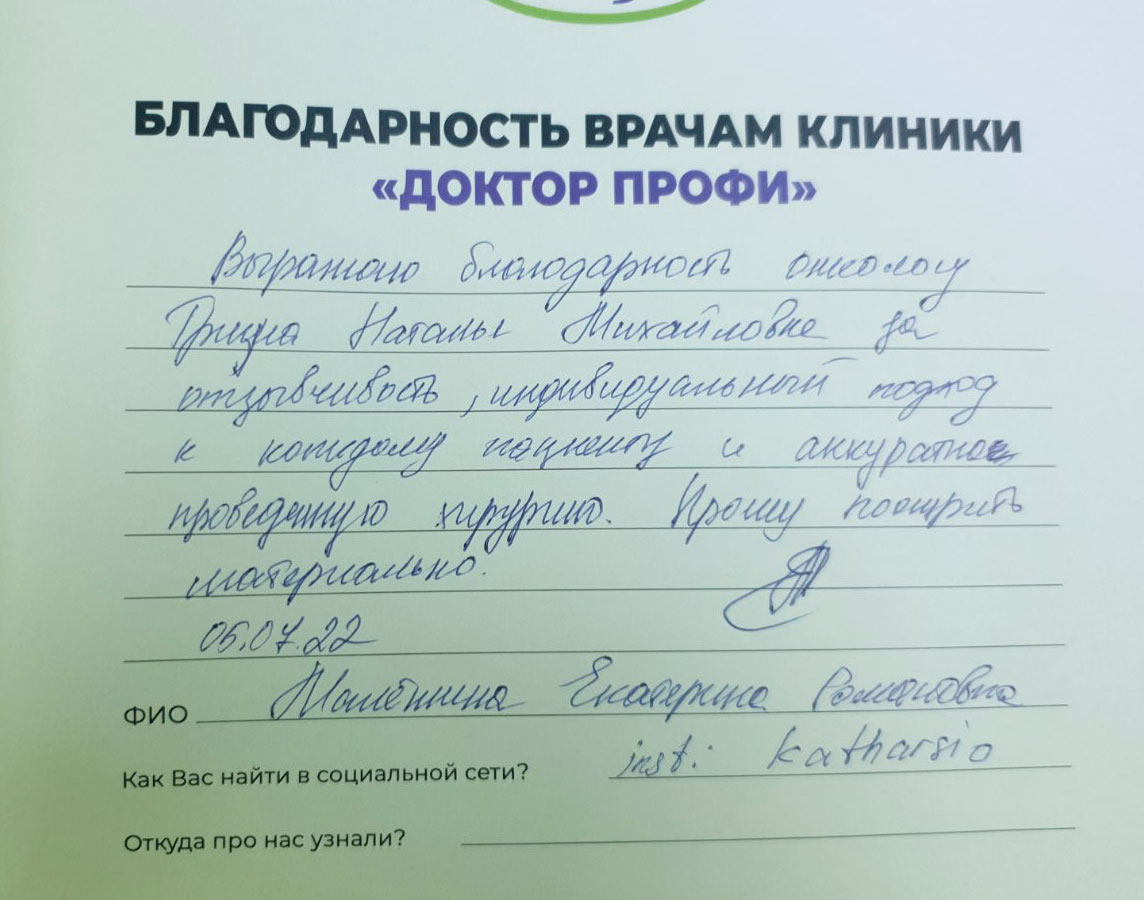 БЛАГОДАРНОСТЬ ВРАЧАМ КЛИНИКИ
«ДОКТОР ПРОФИ»
Выражаю благодарность онкологу
Наталье Михайловне за
отзывчивость, индивидуальный подход
к каждому пациенту и аккуратно
проведенную хирургию. Прошу поощрить
материально.
05.07.22
ФИО Екатерина Романовна
Как Вас найти в социальной сети? inst: katharsio
Откуда про нас узнали?